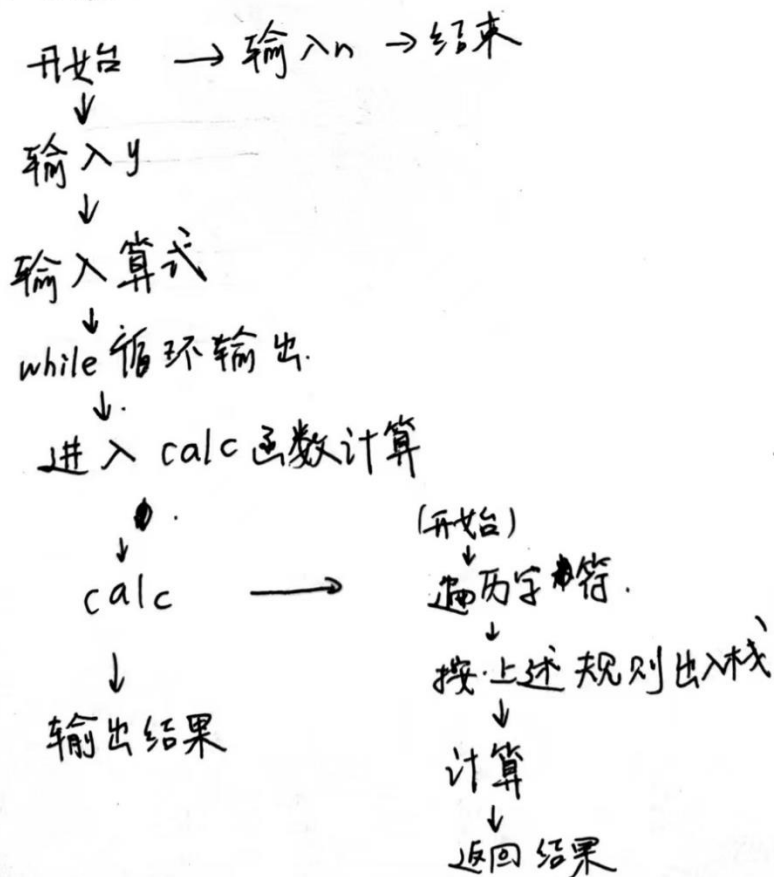 开始 → 输入n → 结束
↓
输入y
↓
输入算式
↓
while循环输出.
↓.
进入 calc函数计算
↓
calc →
↓
输出结果
(开始)
↓
遍历字符.
↓
按上述规则出入栈
↓
计算
↓
返回结果